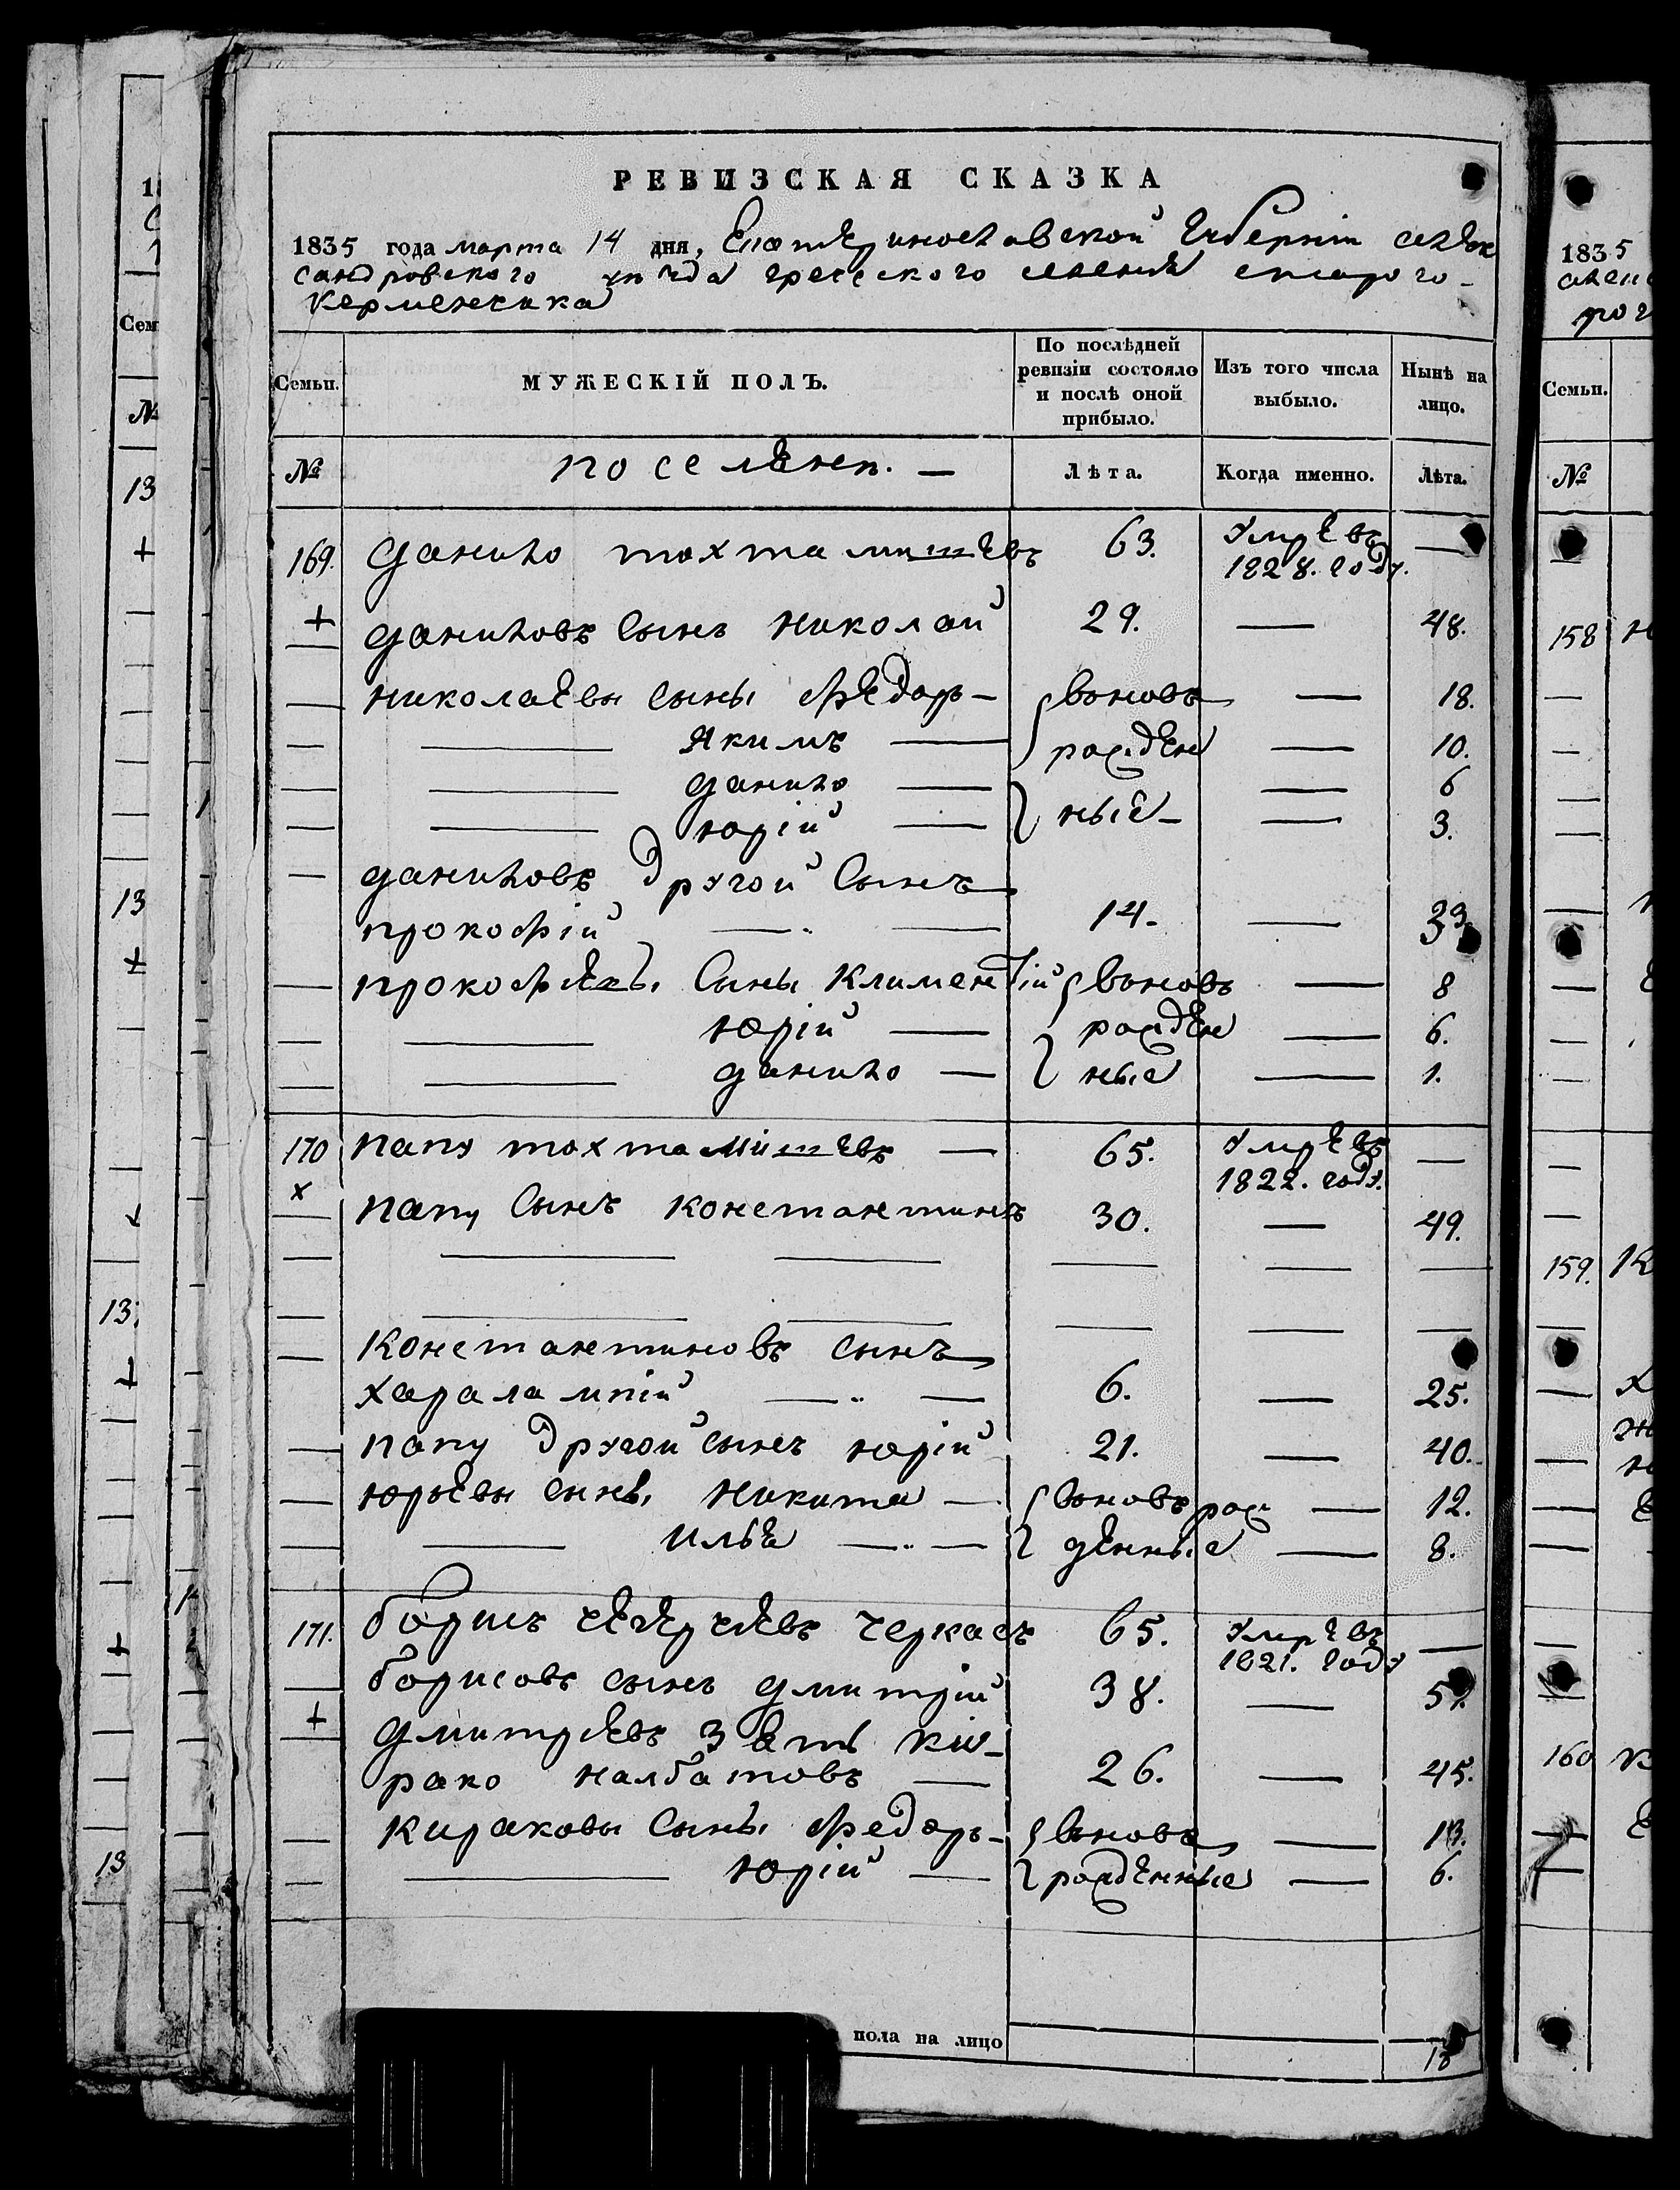 РЕВИЗСКАЯ СКАЗКА
1835 года марта 14 дня, Екатеринославской Губернии Алек
сандровского уезда греческого селения старого
Керменчика
Семьи.
МУЖЕСКІЙ ПОЛЪ.
По послѣдней ревизіи состояло и послѣ оной прибыло.
Изъ того числа выбыло.
Нынѣ на лицо.
№ поселянъ. — Лѣта. Когда именно. Лѣта.
169. Данило тохтамишевъ 63. Умре въ 1828. году. —
Даниловъ Сынъ Николай 29. — 48.
Николаевы Сыны Федоръ — вновь — 18.
— Якимъ — рожден — 10.
— Данило — — 6
— Юрій — ные — — 3.
Даниловъ Другой Сынъ
прокофій — 14. — 33
прокофьевы Сыны Климентій вновь — 8
— Юрій — рожден — 6.
— Данило — ные — 1.
170 Папу тохтамишевъ — 65. Умре въ 1822. году. —
Папу Сынъ Константинъ 30. — 49.
Константиновъ сынъ
харалампій — 6. — 25.
Папу Другой сынъ юрій 21. — 40.
Юрьевы сыны Никита — вновь рож — 12.
— Илья — денные — 8.
171. борисъ Черкасъ 65. Умре въ 1821. году —
борисовъ сынъ Дмитрій 38. —
Дмитревъ Зять Ки-
рако Налбатовъ — 26. — 45.
Кираковы Сыны Федоръ — вновь — 13.
— Юрій — рожденные — 6.
пола на лицо 18
1835
Семьи.
№
158
159.
160
13
13
13
13